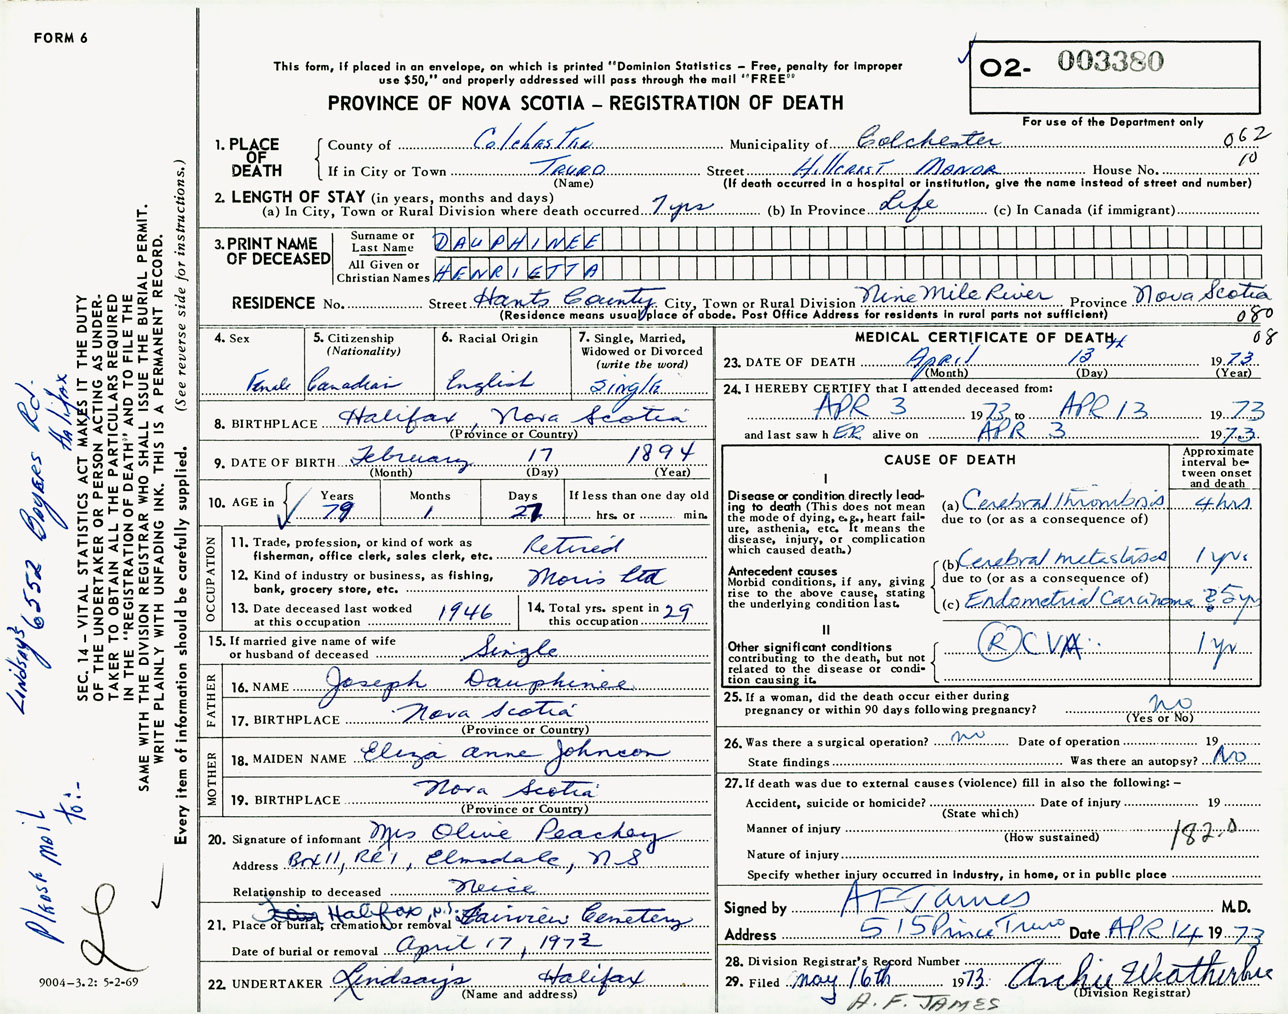 FORM 6
This form, if placed in an envelope, on which is printed "Dominion Statistics – Free, penalty for improper
use $50," and properly addressed will pass through the mail "FREE"
PROVINCE OF NOVA SCOTIA – REGISTRATION OF DEATH
O2- 003380
For use of the Department only
062
10
1. PLACE OF DEATH
County of Colchester Municipality of Colchester
If in City or Town Truro Street Hillcrest Manor House No.
(Name) (If death occurred in a hospital or institution, give the name instead of street and number)
2. LENGTH OF STAY (in years, months and days)
(a) In City, Town or Rural Division where death occurred 7 yrs (b) In Province Life (c) In Canada (if immigrant)
3. PRINT NAME OF DECEASED
Surname or Last Name DAUPHINEE
All Given or Christian Names HENRIETTA
RESIDENCE No. Street Hants County City, Town or Rural Division Nine Mile River Province Nova Scotia
(Residence means usual place of abode. Post Office Address for residents in rural parts not sufficient)
080
08
4. Sex
Female
5. Citizenship
(Nationality)
Canadian
6. Racial Origin
English
7. Single, Married,
Widowed or Divorced
(write the word)
Single
8. BIRTHPLACE Halifax, Nova Scotia
(Province or Country)
9. DATE OF BIRTH February 17 1894
(Month) (Day) (Year)
10. AGE in
Years Months Days If less than one day old
79 1 27 hrs. or min.
OCCUPATION
11. Trade, profession, or kind of work as
fisherman, office clerk, sales clerk, etc. Retired
12. Kind of industry or business, as fishing,
bank, grocery store, etc. Moirs Ltd
13. Date deceased last worked
at this occupation 1946
14. Total yrs. spent in
this occupation 29
15. If married give name of wife
or husband of deceased Single
FATHER
16. NAME Joseph Dauphinee
17. BIRTHPLACE Nova Scotia
(Province or Country)
MOTHER
18. MAIDEN NAME Eliza Anne Johnson
19. BIRTHPLACE Nova Scotia
(Province or Country)
20. Signature of informant Mrs Olive Peachey
Address Box 11, RR 1, Elmsdale, N S
Relationship to deceased Neice
Halifax, N.S. Fairview Cemetery
21. Place of burial, cremation or removal
Date of burial or removal April 17, 1973
22. UNDERTAKER Lindsay's Halifax
(Name and address)
MEDICAL CERTIFICATE OF DEATH
23. DATE OF DEATH April 13 th 1973
(Month) (Day) (Year)
24. I HEREBY CERTIFY that I attended deceased from:
APR 3 1973 to APR 13 1973
and last saw h ER alive on APR 3 1973
CAUSE OF DEATH
Approximate
interval be-
tween onset
and death
I
Disease or condition directly lead-
ing to death (This does not mean
the mode of dying, e.g., heart fail-
ure, asthenia, etc. It means the
disease, injury, or complication
which caused death.)
(a) Cerebral thrombosis 4 hrs
due to (or as a consequence of)
Antecedent causes
Morbid conditions, if any, giving
rise to the above cause, stating
the underlying condition last.
(b) Cerebral metastases 1 yr.
due to (or as a consequence of)
(c) Endometrial Carcinoma ? 5 yr
II
Other significant conditions
contributing to the death, but not
related to the disease or condi-
tion causing it.
(R) CVA 1 yr
25. If a woman, did the death occur either during
pregnancy or within 90 days following pregnancy? no
(Yes or No)
26. Was there a surgical operation? no Date of operation 19
State findings Was there an autopsy? No
27. If death was due to external causes (violence) fill in also the following: –
Accident, suicide or homicide? Date of injury 19
(State which)
Manner of injury
(How sustained)
182.0
Nature of injury
Specify whether injury occurred in Industry, in home, or in public place
Signed by A F James M.D.
Address 515 Prince Truro Date APR 14 1973
28. Division Registrar's Record Number
29. Filed May 16th 1973 Archie Weatherbee
(Division Registrar)
A. F. JAMES
SEC. 14 – VITAL STATISTICS ACT MAKES IT THE DUTY
OF THE UNDERTAKER OR PERSON ACTING AS UNDER-
TAKER TO OBTAIN ALL THE PARTICULARS REQUIRED
IN THE "REGISTRATION OF DEATH" AND TO FILE THE
SAME WITH THE DIVISION REGISTRAR WHO SHALL ISSUE THE BURIAL PERMIT.
WRITE PLAINLY WITH UNFADING INK. THIS IS A PERMANENT RECORD.
Every item of information should be carefully supplied. (See reverse side for instructions.)
Please mail
to:-
Lindsay's
6552 Bayers Rd.
Halifax
9004-3.2: 5-2-69